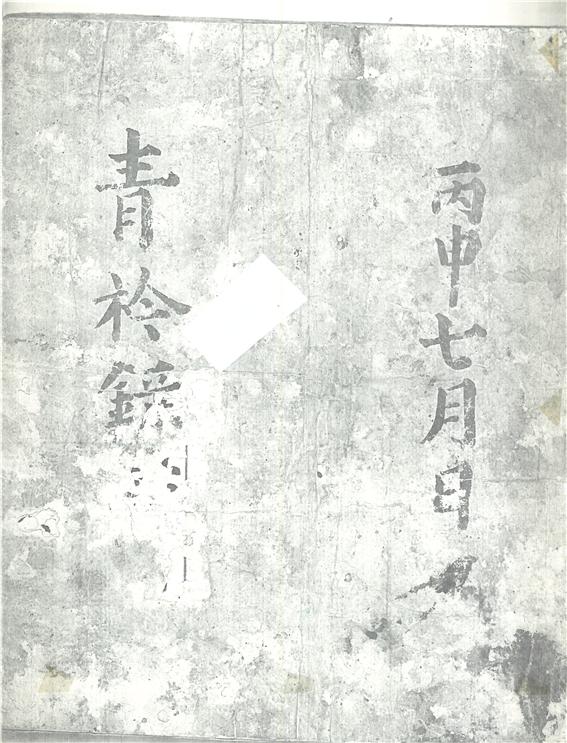 丙申七月日
青衿錄